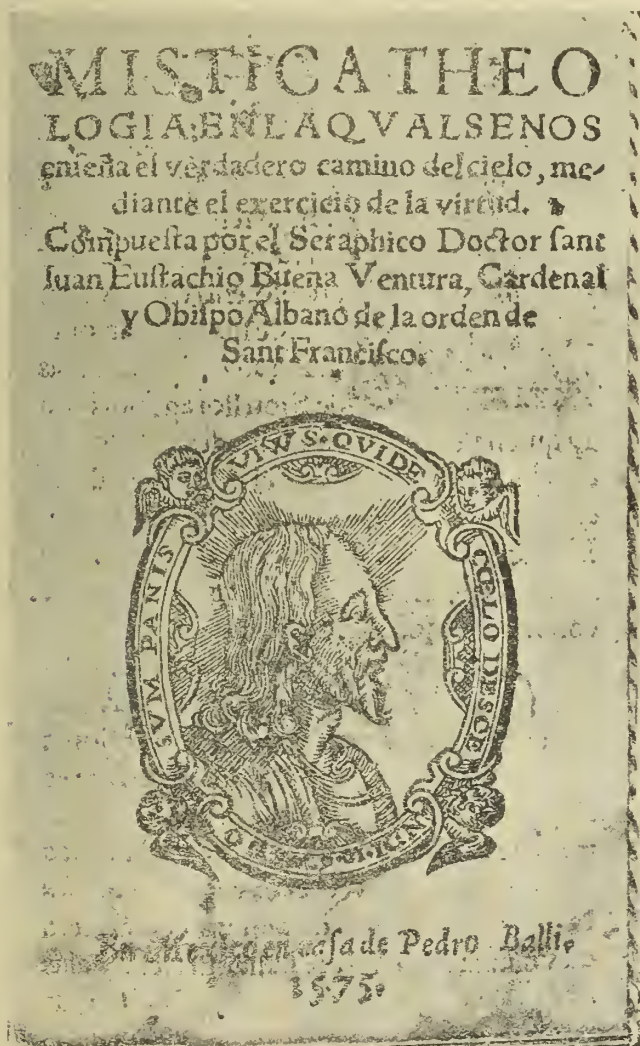 MISTICA THEO
LOGIA: EN LA QVAL SE NOS
enſeña el verdadero camino del cielo, me-
diante el exercicio de la virtud.
Compueſta por el Seraphico Doctor ſant
Iuan Euſtachio Buena Ventura, Cardenal
y Obiſpo Albano de la orden de
Sant Franciſco.
SVM PANIS
VIWS · QVIDE
COELO DESCE
En Mexico en caſa de Pedro Balli.
1575.